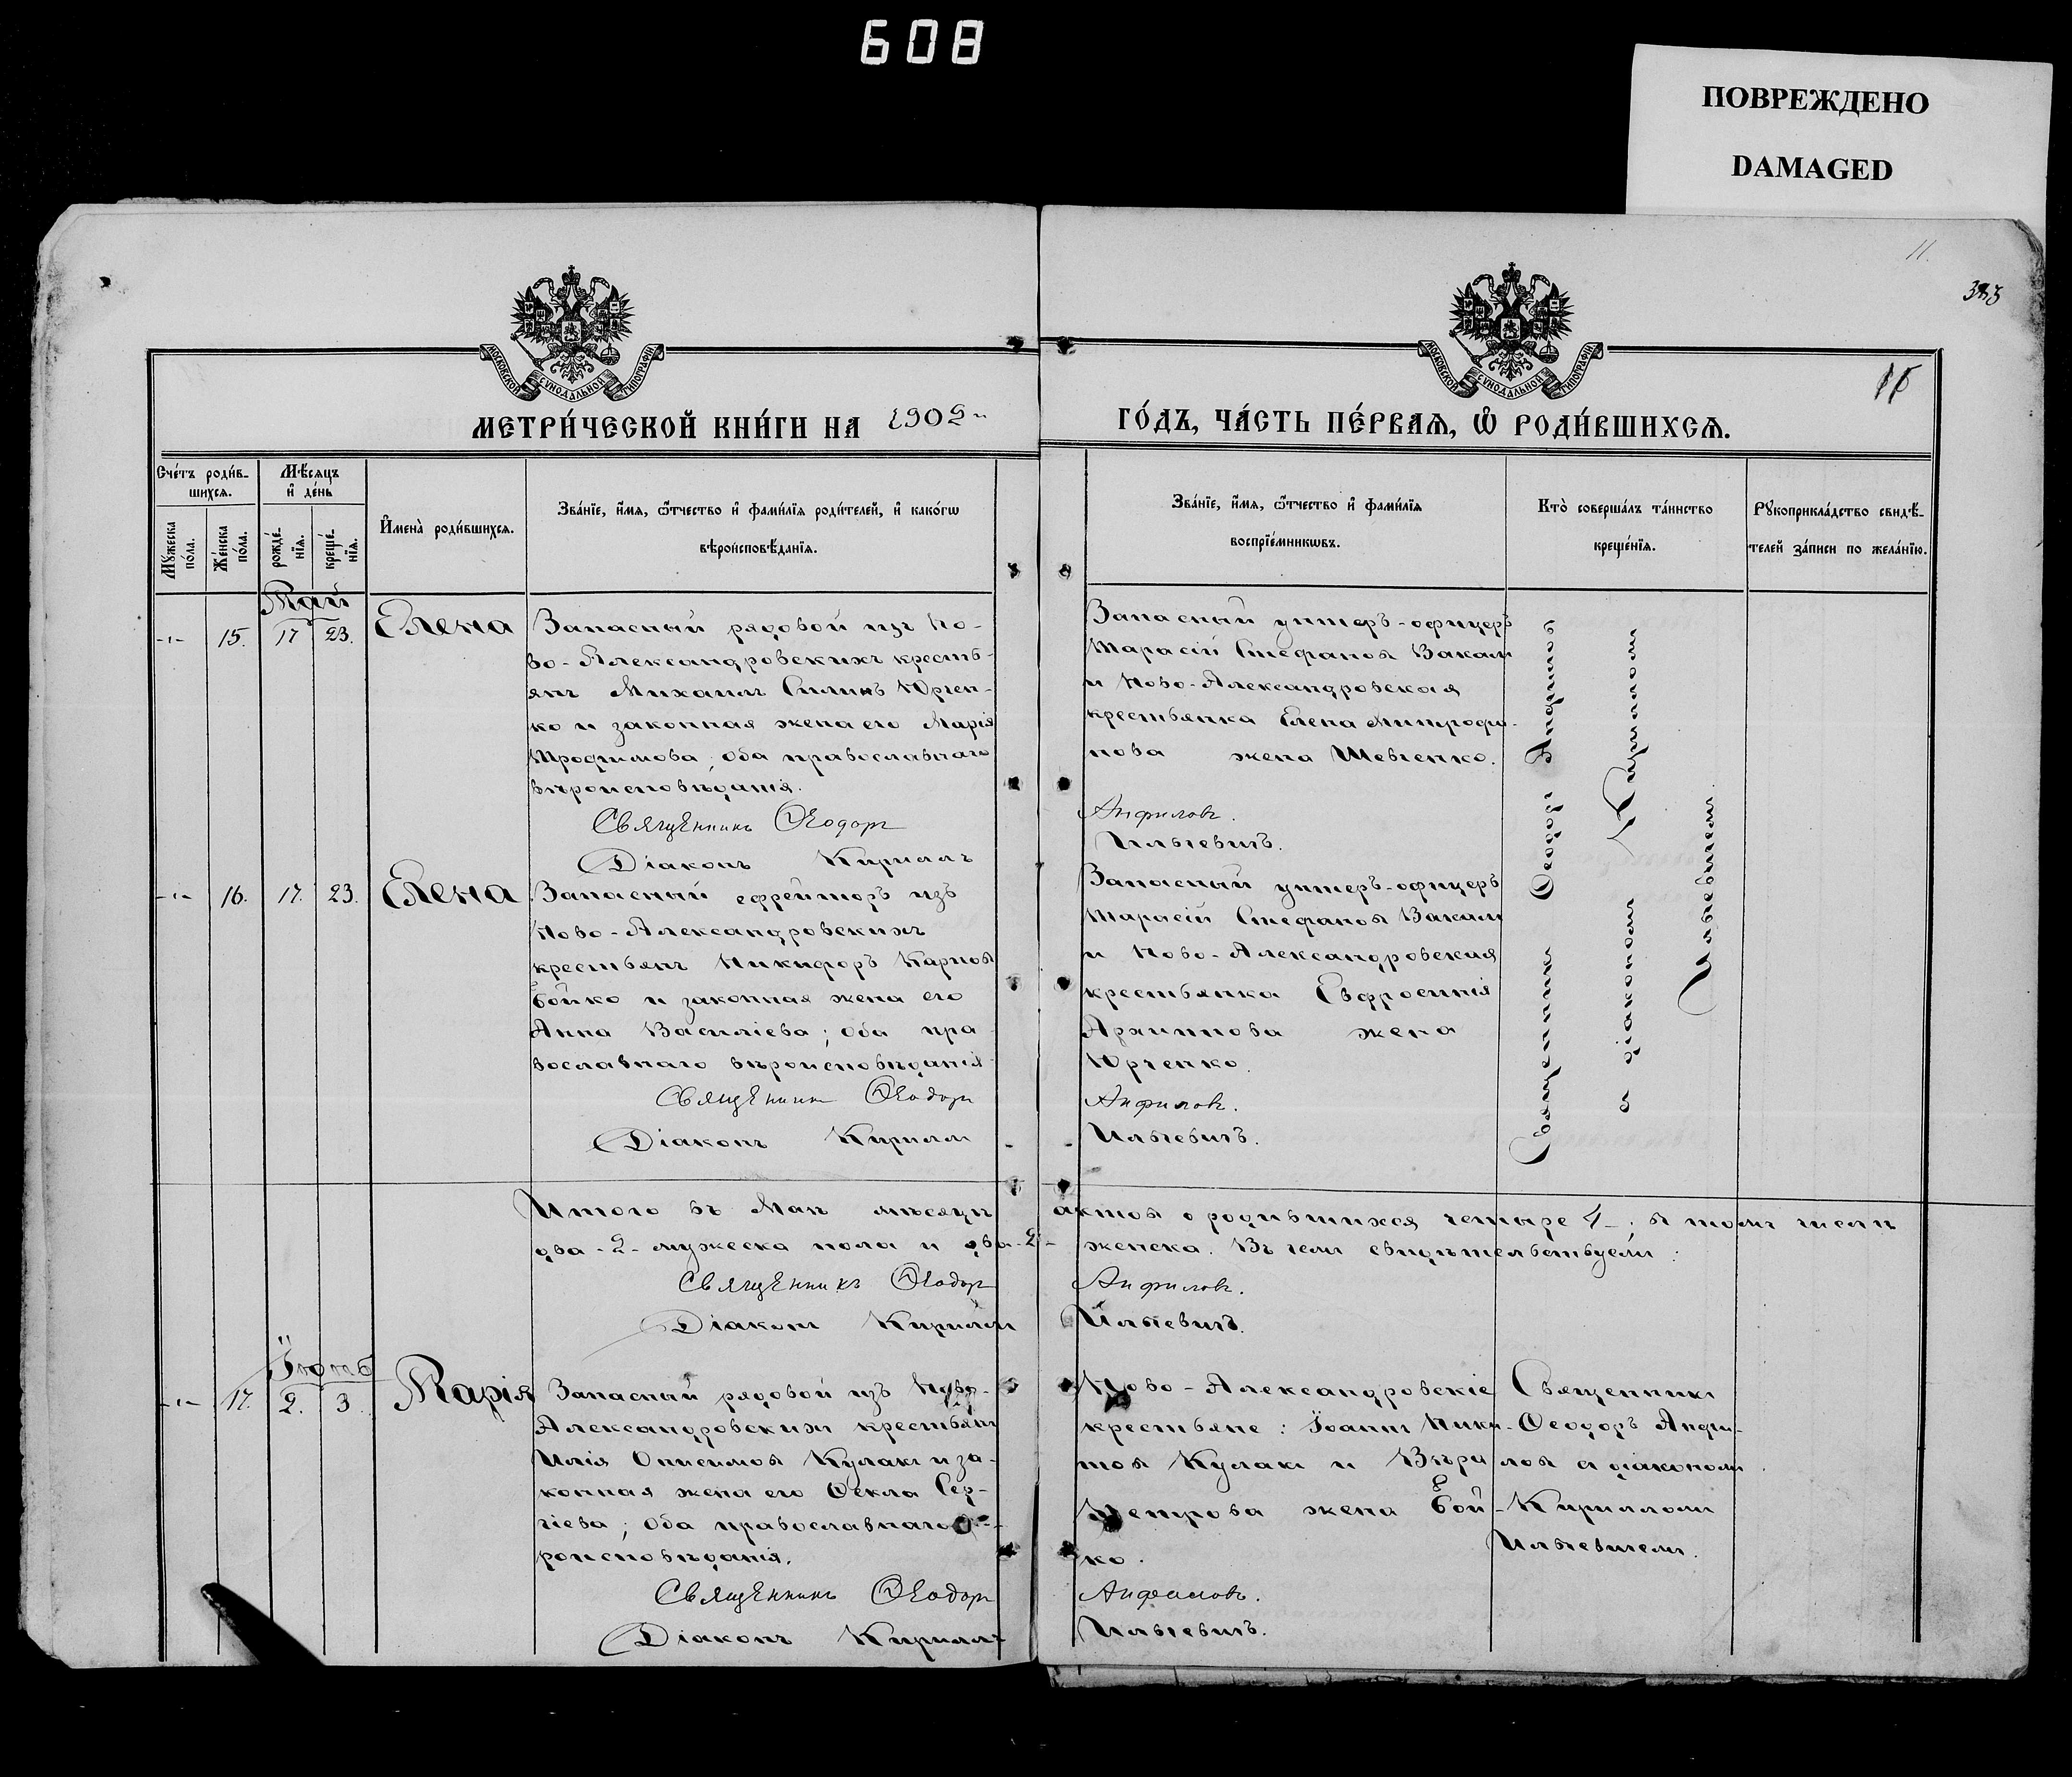 608
ПОВРЕЖДЕНО
DAMAGED
11.
МОСКОВСКОЙ СѴНОДАЛЬНОЙ ТИПОГРАФІИ
МОСКОВСКОЙ СѴНОДАЛЬНОЙ ТИПОГРАФІИ
МЕТРИ́ЧЕСКОЙ КНИ́ГИ НА 1905
ГО́ДЪ, ЧА́СТЬ ПЕ́РВАѦ, Ѽ РОДИ́ВШИХСѦ.
Сче́тъ роди́в-
шихсѧ.
Мꙋ́жеска по́ла.
Же́нска по́ла.
Мѣ́сѧцъ
и҆ де́нь
рожде́-нїѧ.
креще́-нїѧ.
И҆мена̀ роди́вшихсѧ.
Зва́нїе, и҆́мѧ, ѻ҆́тчество и҆ фами́лїѧ роди́телей, и҆ како́гѡ
вѣроисповѣ́данїѧ.
Зва́нїе, и҆́мѧ, ѻ҆́тчество и҆ фами́лїѧ
воспрїе́мникѡвъ.
Кто̀ соверша́лъ та́инство
креще́нїѧ.
Рꙋкоприкла́дство свидѣ́-
телей за́писи по жела́нїю.
Май
-"- 15. 17 23. Елена
Запасный рядовой изъ Но-
во-Александровскихъ кресть-
янъ Михаилъ Силинъ Юрчен-
ко и законная жена его Марія
Трофимова; оба православнаго
вѣроисповѣданія.
Священникъ Ѳеодоръ
Діаконъ Кириллъ
Запасный унтеръ-офицеръ
Тарасій Стефановъ Вакал
и Ново-Александровская
крестьянка Елена Митрофа-
нова жена Шевченко.
Анфиловъ.
Ильчевичъ.
Священникъ Ѳеодоръ Анфиловъ
съ діакономъ Кирилломъ
Ильчевичемъ.
-"- 16. 17. 23. Елена
Запасный ефрейторъ изъ
Ново-Александровскихъ
крестьянъ Никифоръ Карповъ
Бойко и законная жена его
Анна Василіева; оба пра-
вославнаго вѣроисповѣданія.
Священникъ Ѳеодоръ
Діаконъ Кириллъ
Запасный унтеръ-офицеръ
Тарасій Стефановъ Вакал
и Ново-Александровская
крестьянка Евфросинія
Архиппова жена
Юрченко.
Анфиловъ.
Ильчевичъ.
Итого въ Маѣ мѣсяцѣ актовъ о родившихся четыре 4-; въ томъ числѣ
два -2- мужеска пола и два -2- женска. Въ чемъ свидѣтельствуемъ:
Священникъ Ѳеодоръ Анфиловъ.
Діаконъ Кириллъ Ильчевичъ.
Іюнь
-"- 17. 2. 3. Марія
Запасный рядовой изъ Ново-
Александровскихъ крестьянъ
Илія Онисимовъ Кулакъ и за-
конная жена его Ѳекла Сер-
гіева; оба православнаго вѣ-
роисповѣданія.
Священникъ Ѳеодоръ
Діаконъ Кириллъ
Ново-Александровскіе
крестьяне: Іоаннъ Ники-
товъ Кулакъ и Вѣра
Петрова жена Бой-
ко.
Анфиловъ.
Ильчевичъ.
Священникъ
Ѳеодоръ Анфи-
ловъ съ діакономъ
Кирилломъ
Ильчевичемъ.